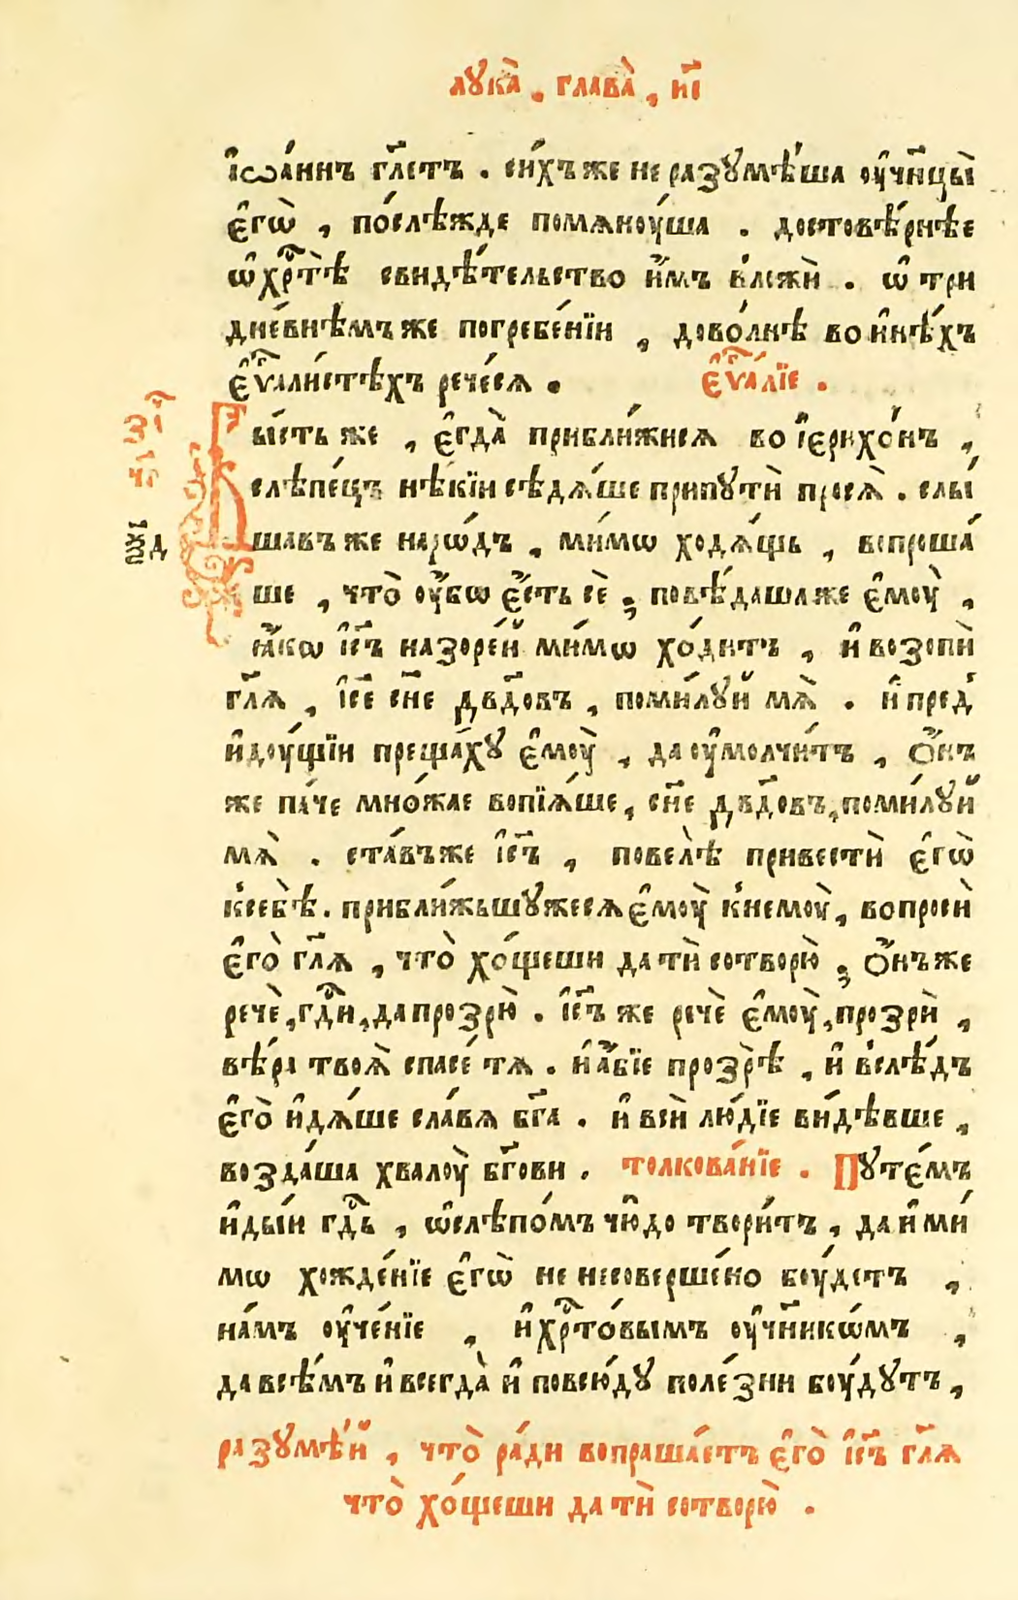 лꙋка̀ . глава̀ , и҃і
і҆ѡа́ннъ гл҃етъ . си́хъ же не разꙋмѣ́ша оу҆чн҃цы̀
є҆гѡ̀ , по́слѣжде помѧноу́ша . достовѣ́рнѣе
ѡ҆ хрⷭ҇тѣ̀ свидѣ́тельство и҆́мъ вложѝ . ѡ҆ три
дне́внѣмъ же погребе́нїи , дово́лнѣ во и҆нѣ́хъ
є҆ѵⷢ҇али́стѣхъ рече́сѧ . є҆ѵⷢ҇а́лїе .
Бы́сть же , є҆гда̀ прибли́жисѧ во і҆єрихо́нъ ,
слѣпе́цъ нѣ́кїи сѣдѧ́ше при пути̑ просѧ̀ . слы́
шавъ же наро́дъ , ми́мѡ ходѧ́щь , вопроша́
ше , что̀ оу҆́бѡ є҆́сть сѐ ; повѣ́дашаже є҆моу̀ ,
ꙗ҆́кѡ і҆с҃ъ назоре́й ми́мѡ хо́дитъ , и҆ возопѝ
гл҃ѧ , і҆с҃е сн҃е дв҃довъ , поми́лꙋй мѧ̀ . и҆ пред̾
и҆доу́щїи преща́хꙋ є҆моу̀ , да оу҆молчи́тъ , ѻ҆́нъ
же па́че мно́жае вопїѧ́ше , сн҃е дв҃довъ , поми́лꙋй
мѧ̀ . ста́въже і҆с҃ъ , повелѣ̀ привестѝ є҆гѡ̀
к̾себѣ̀ . прибли́жьшꙋжесѧ є҆моу̀ к̾немоу̀ , вопросѝ
є҆го̀ гл҃ѧ , что̀ хо́щеши да тѝ сотворю̀ ; ѻ҆́нъ же
речѐ , гдⷭ҇и , да прозрю̀ . і҆с҃ъ же речѐ є҆моу̀ , прозрѝ ,
вѣ́ра твоѧ̀ спасе́ тѧ . и҆ а҆́бїе прозрѣ̀ , и҆ в̾слѣ́дъ
є҆го̀ и҆дѧ́ше сла́вѧ бг҃а . и҆ всѝ лю́дїе ви́дѣвше ,
возда́ша хвалоу̀ бг҃ови . толкова́нїе . Пꙋте́мъ
и҆ды́и гдⷭ҇ь , ѡ҆слѣпо́мъ чю́до твори́тъ , да и҆ ми́
мѡ хожде́нїе є҆гѡ̀ не несоверше́но боу́детъ ,
на́мъ оу҆че́нїе , и҆ хрⷭ҇то́вымъ оу҆чн҃икѡ́мъ ,
да всѣ́мъ и҆ всегда̀ и҆ повсю́дꙋ поле́зни боу́дꙋтъ ,
разꙋмѣ́й , что̀ ра́ди вопраша́етъ є҆го̀ і҆с҃ъ гл҃ѧ
что̀ хо́щеши да тѝ сотворю̀ .